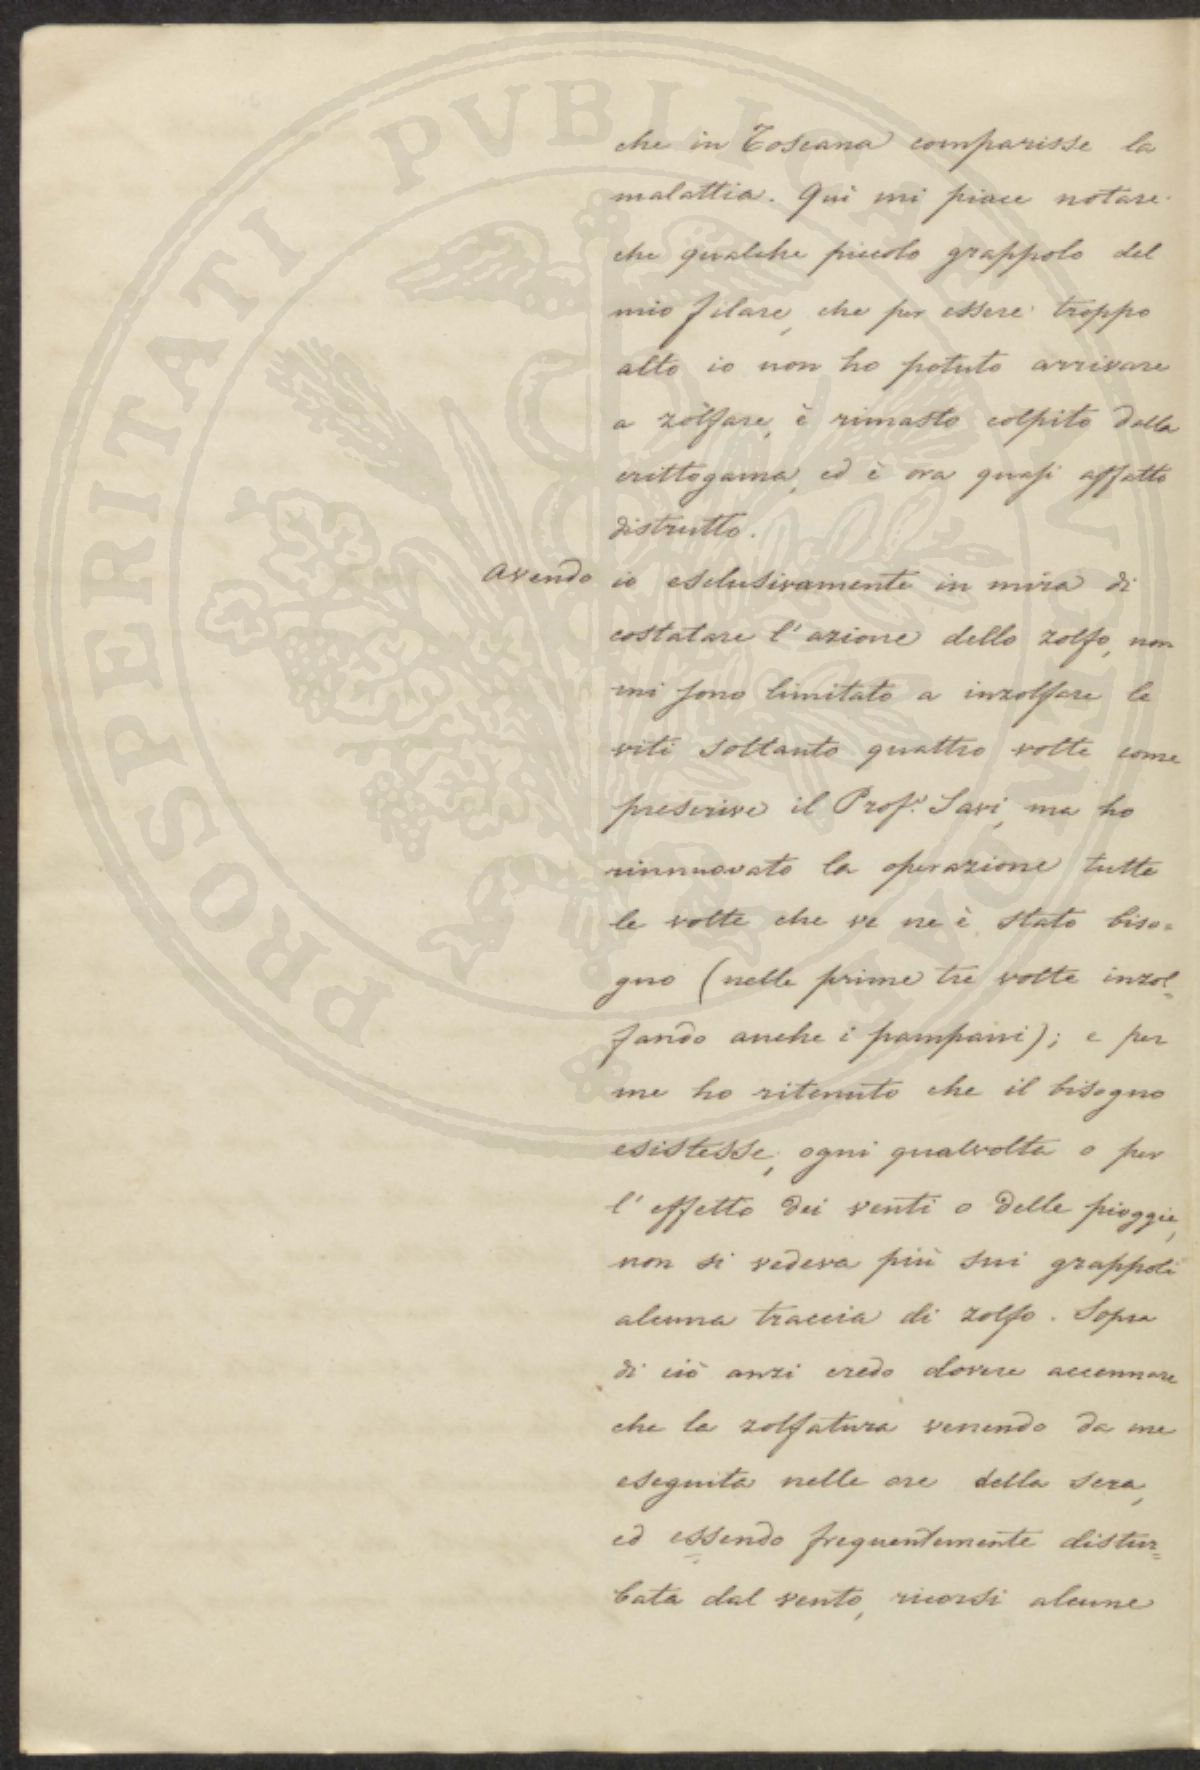 che in Toscana comparisse la
malattia. Quì mi piace notare
che qualche piccolo grappolo del
mio filare, che per essere troppo
alto io non ho potuto arrivare
a zolfare, è rimasto colpito dalla
crittogama, ed è ora quasi affatto
distrutto.
Avendo io esclusivamente in mira di
costatare l'azione dello zolfo, non
mi sono limitato a inzolfare le
viti soltanto quattro volte come
prescrive il Prof.r Savi, ma ho
rinnuovato la operazione tutte
le volte che ve ne è stato biso=
gno (nelle prime tre volte inzol=
fando anche i pampani); e per
me ho ritenuto che il bisogno
esistesse, ogni qualvolta o per
l'effetto dei venti o delle pioggie,
non si vedeva più sui grappoli
alcuna traccia di zolfo. Sopra
di ciò anzi credo dovere accennare
che la zolfatura venendo da me
eseguita nelle ore della sera,
ed essendo frequentemente distur=
bata dal vento, ricorsi alcune
PROSPERITATI PVBLICAE